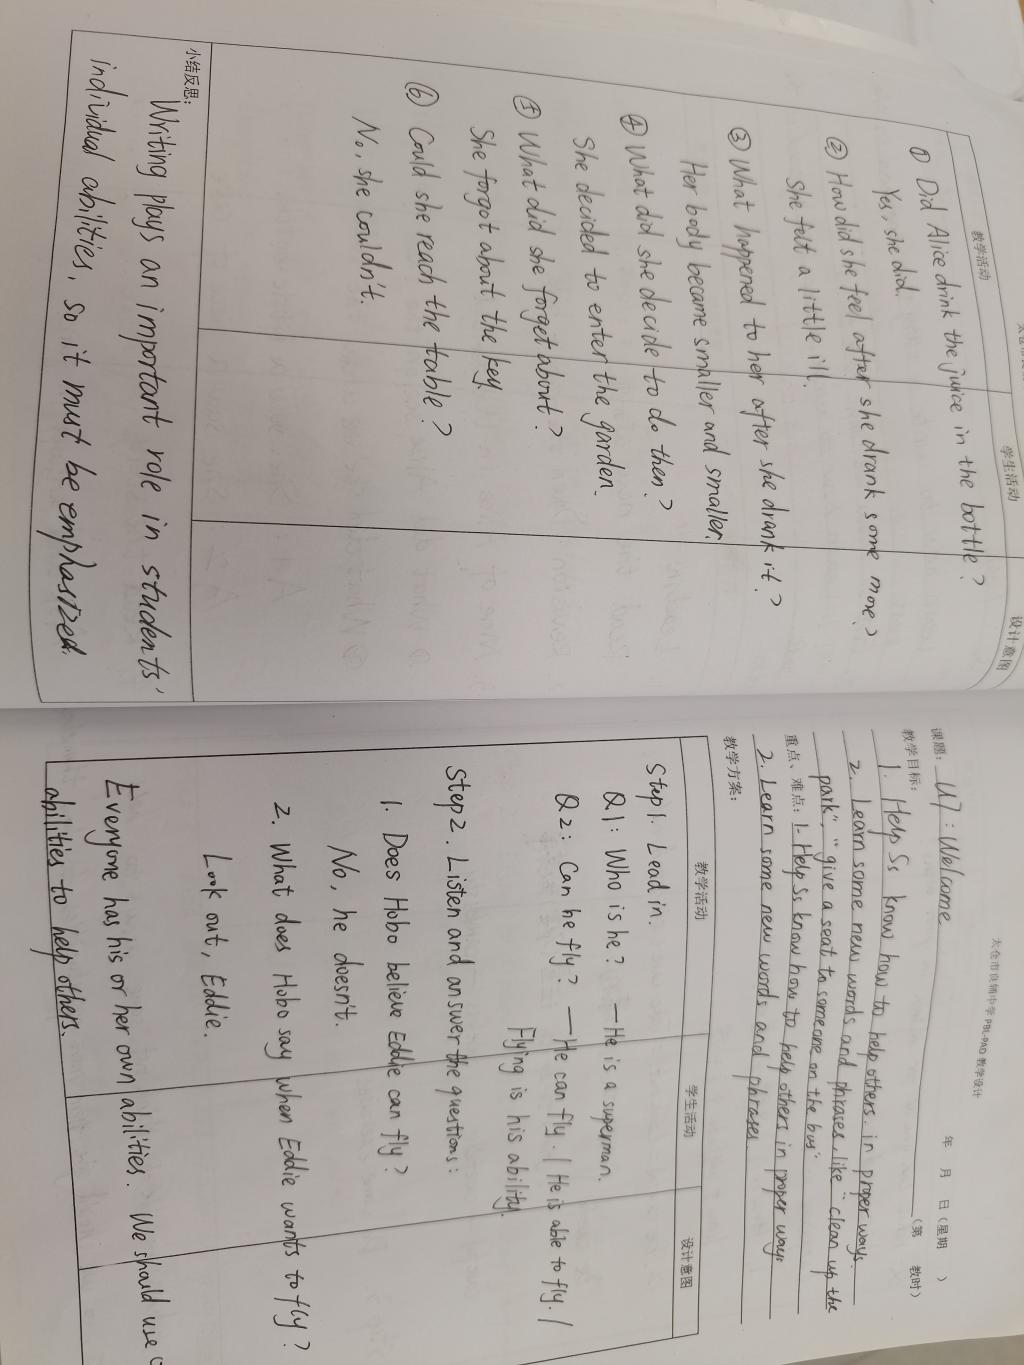 教学活动 学生活动 设计意图
① Did Alice drink the juice in the bottle?
Yes, she did.
② How did she feel after she drank some more?
She felt a little ill.
③ What happened to her after she drank it?
Her body became smaller and smaller.
④ What did she decide to do then?
She decided to enter the garden.
⑤ What did she forget about?
She forgot about the key.
⑥ Could she reach the table?
No, she couldn't.
小结反思:
Writing plays an important role in students'
individual abilities, so it must be emphasized.
太仓市良辅中学PBL-PAD教学设计
年 月 日(星期 )
课题: U7: Welcome (第 教时)
教学目标:
1. Help Ss know how to help others in proper ways.
2. Learn some new words and phrases, like "clean up the
park", "give a seat to someone on the bus".
重点、难点: 1. Help Ss know how to help others in proper ways
2. Learn some new words and phrases
教学方案:
教学活动 学生活动 设计意图
Step1. Lead in.
Q1: Who is he? —He is a superman.
Q2: Can he fly? —He can fly. / He is able to fly. /
Flying is his ability.
Step2. Listen and answer the questions:
1. Does Hobo believe Eddie can fly?
No, he doesn't.
2. What does Hobo say when Eddie wants to fly?
Look out, Eddie.
Everyone has his or her own abilities. We should use
abilities to help others.